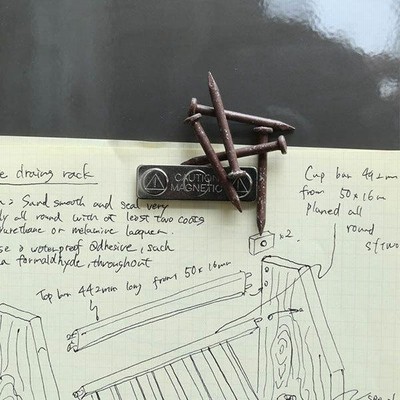 e draing rack
CAUTION
MAGNETIC
: Sand smooth and seal very
all round with at least two coats
urethane or melamine lacquer.
se a waterproof adhesive, such
a formaldehyde, throughout
Cup bar 492mm
from 50 x 16m
planed all
round
x 2
Top bar 442mm long from 50 x 16mm